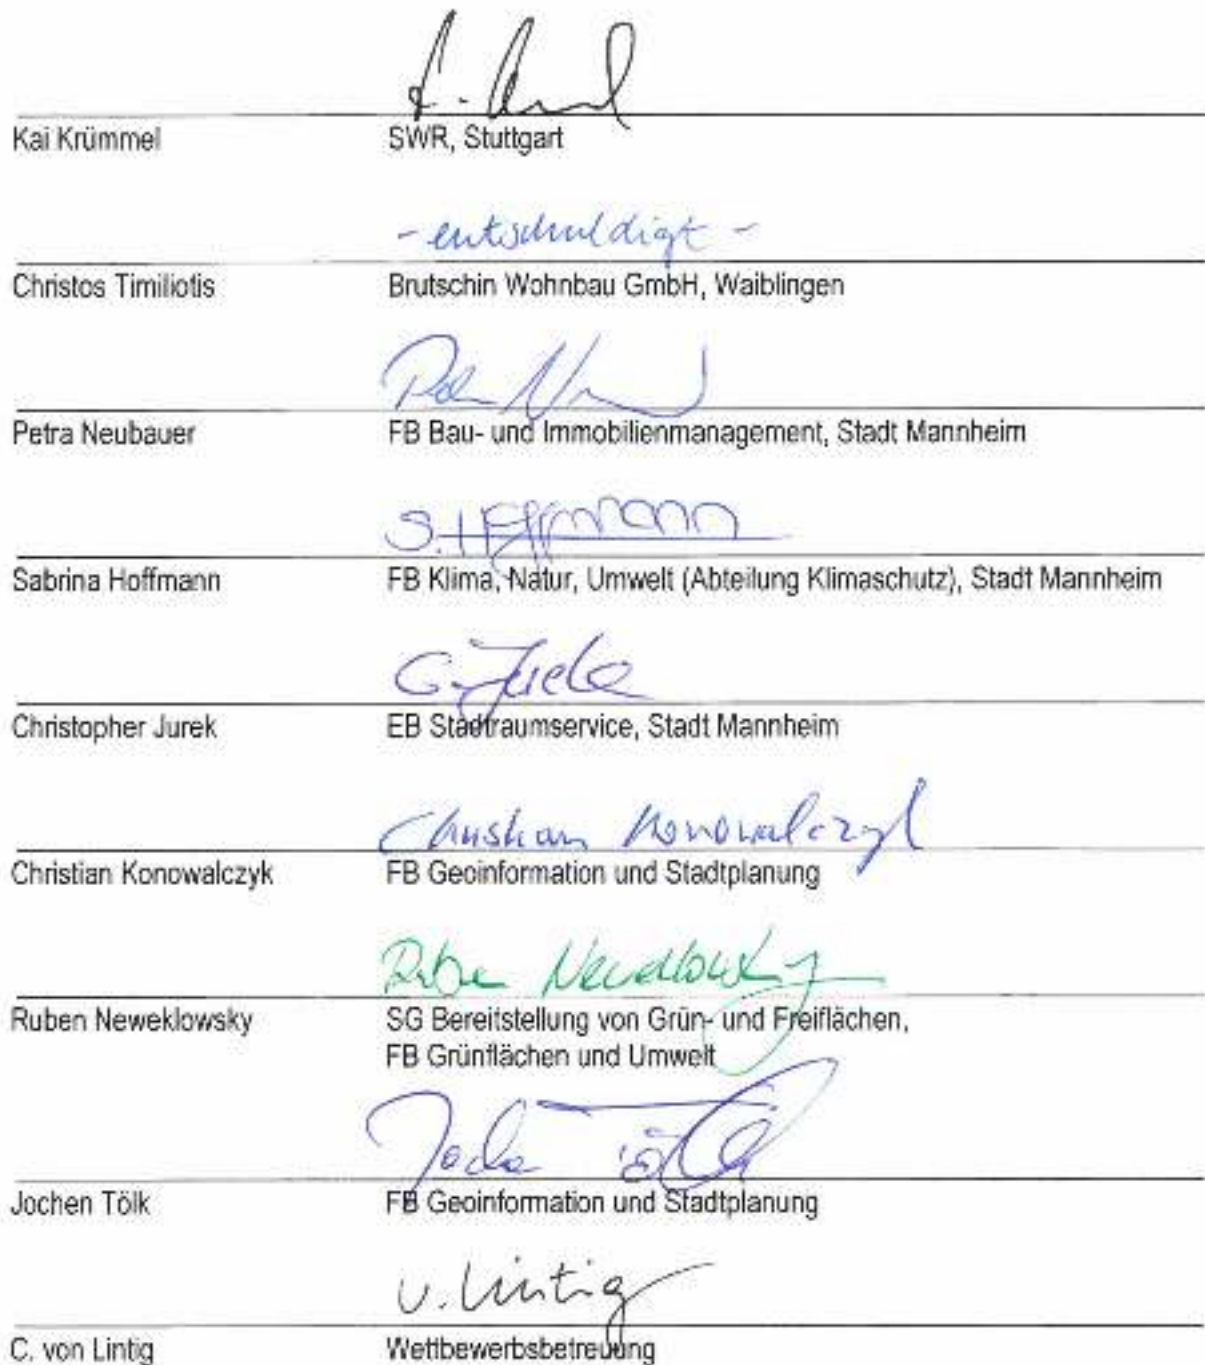 Kai Krümmel SWR, Stuttgart
- entschuldigt -
Christos Timiliotis Brutschin Wohnbau GmbH, Waiblingen
Petra Neubauer FB Bau- und Immobilienmanagement, Stadt Mannheim
S. Hoffmann
Sabrina Hoffmann FB Klima, Natur, Umwelt (Abteilung Klimaschutz), Stadt Mannheim
C. Jurek
Christopher Jurek EB Stadtraumservice, Stadt Mannheim
Christian Konowalczyk
Christian Konowalczyk FB Geoinformation und Stadtplanung
Ruben Neweklowsky
Ruben Neweklowsky SG Bereitstellung von Grün- und Freiflächen,
FB Grünflächen und Umwelt
Jochen Tölk
Jochen Tölk FB Geoinformation und Stadtplanung
v. Lintig
C. von Lintig Wettbewerbsbetreuung